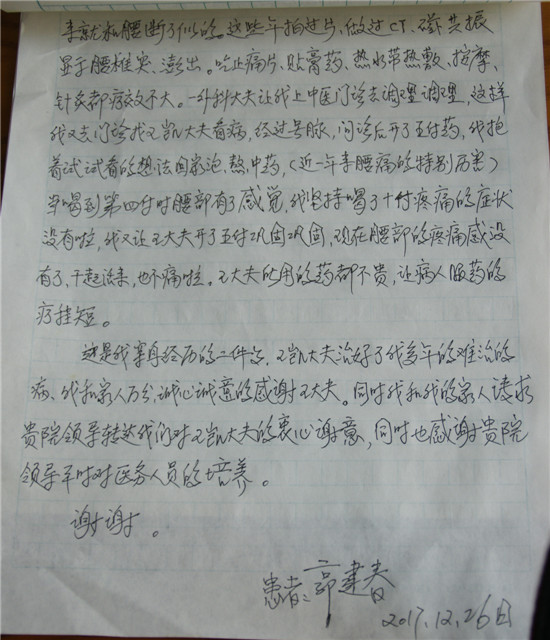 来就和腰断了似的。这些年拍过片,做过CT、磁共振
显于腰椎突、澎出。吃止痛片、贴膏药、热水带热敷、按摩、
针灸都疗效不大。一外科大夫让我上中医门诊去调理调理,这样
我又去门诊找王凯大夫看病,经过号脉,问诊后开了五付药,我抱
着试试看的想法回家泡、熬、中药,(近一年来腰痛的特别厉害)
当喝到第四付时腰部有了感觉,我坚持喝了十付疼痛的症状
没有啦,我又让王大夫开了五付巩固巩固,现在腰部的疼痛感没
有了,干起活来,也不痛啦。王大夫所用的药都不贵,让病人服药的
疗程短。
这是我亲身经历的二件事,王凯大夫治好了我多年的难治的
病、我和家人万分,诚心诚意的感谢王大夫。同时我和我的家人请求
贵院领导转达我们对王凯大夫的衷心谢意,同时也感谢贵院
领导平时对医务人员的培养。
谢谢。
患者:郭建春
2017.12.26日